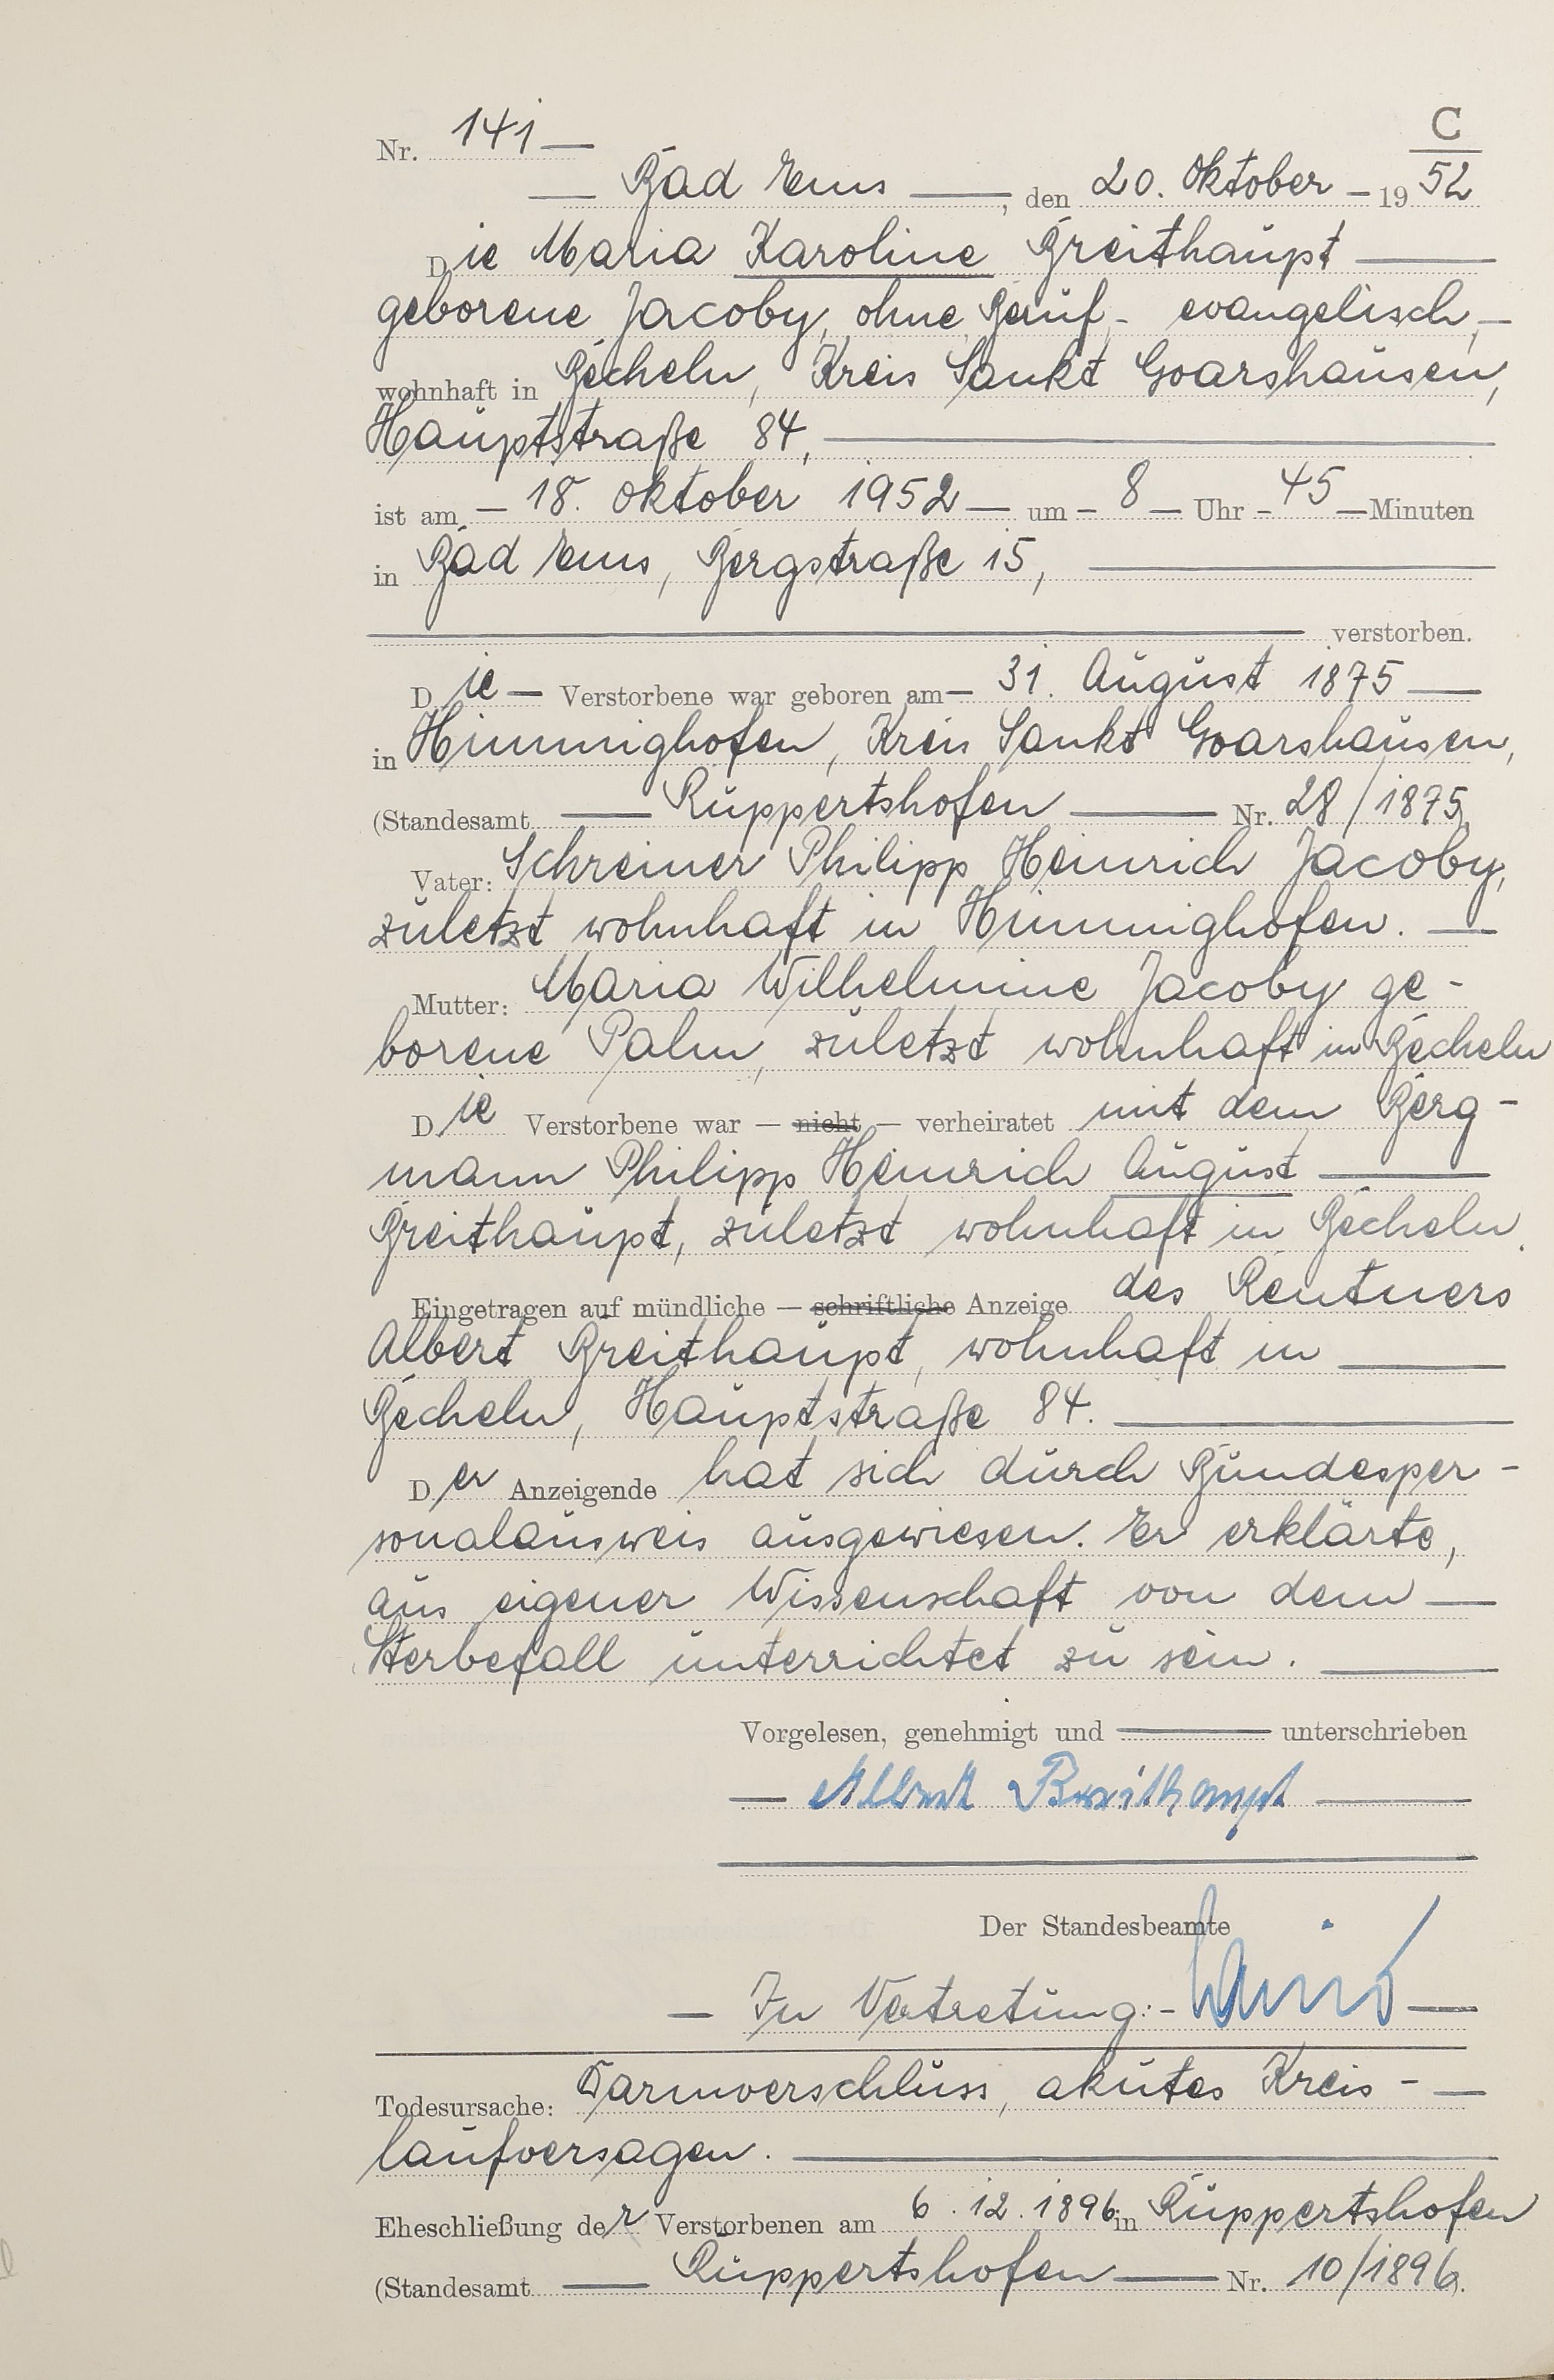 Nr. 141 C
Bad Ems, den 20. Oktober 1952
Die Maria Karoline Breithaupt
geborene Jacoby, ohne Beruf - evangelisch,
wohnhaft in Becheln, Kreis Sankt Goarshausen,
Hauptstraße 84,
ist am 18. Oktober 1952 um 8 Uhr 45 Minuten
in Bad Ems, Bergstraße 15,
verstorben.
Die Verstorbene war geboren am 31. August 1875
in Himmighofen, Kreis Sankt Goarshausen,
(Standesamt Ruppertshofen Nr. 28/1875)
Vater: Schreiner Philipp Heinrich Jacoby,
zuletzt wohnhaft in Himmighofen.
Mutter: Maria Wilhelmine Jacoby ge-
borene Palm, zuletzt wohnhaft in Becheln
Die Verstorbene war — nicht — verheiratet mit dem Berg-
mann Philipp Heinrich August
Breithaupt, zuletzt wohnhaft in Becheln.
Eingetragen auf mündliche — schriftliche Anzeige des Rentners
Albert Breithaupt, wohnhaft in
Becheln, Hauptstraße 84.
Der Anzeigende hat sich durch Bundesper-
sonalausweis ausgewiesen. Er erklärte,
aus eigener Wissenschaft von dem
Sterbefall unterrichtet zu sein.
Vorgelesen, genehmigt und unterschrieben
Albert Breithaupt
Der Standesbeamte
In Vertretung:
Todesursache: Darmverschluss, akutes Kreis-
laufversagen.
Eheschließung der Verstorbenen am 6.12.1896 in Ruppertshofen
(Standesamt Ruppertshofen Nr. 10/1896).